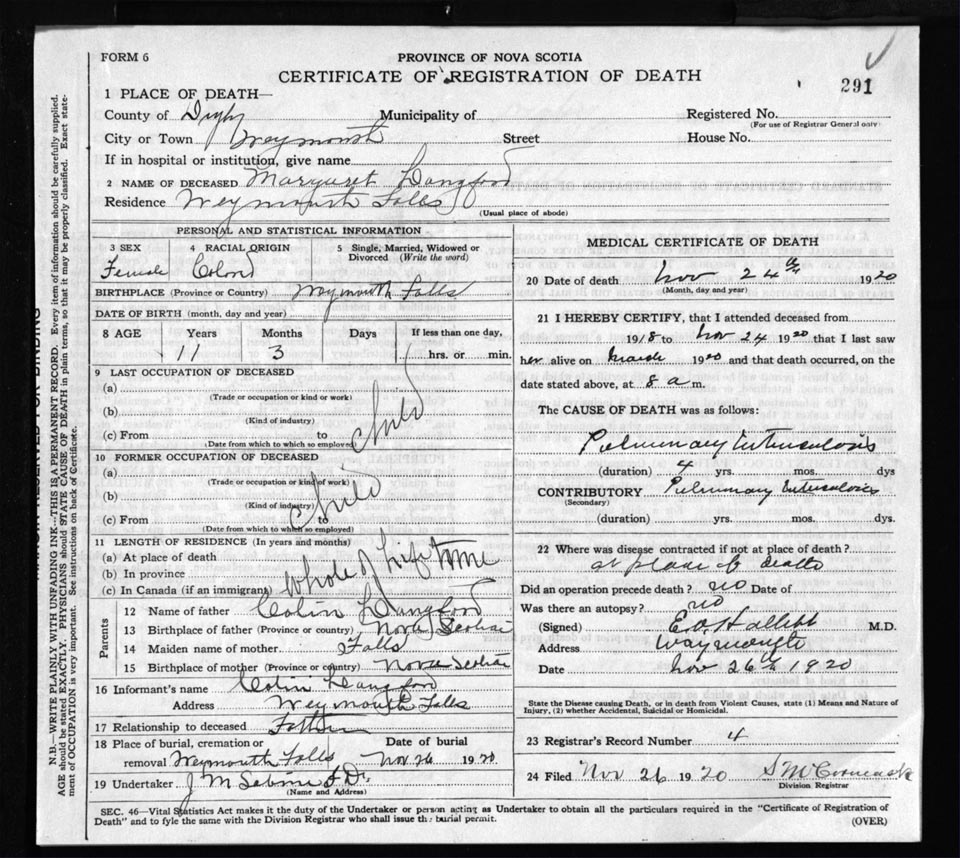 FORM 6
PROVINCE OF NOVA SCOTIA
CERTIFICATE OF REGISTRATION OF DEATH
291
1 PLACE OF DEATH—
County of Digby Municipality of Registered No.
(For use of Registrar General only)
City or Town Weymouth Street House No.
If in hospital or institution, give name
2 NAME OF DECEASED Margaret Langford
Residence Weymouth Falls
(Usual place of abode)
PERSONAL AND STATISTICAL INFORMATION
3 SEX 4 RACIAL ORIGIN 5 Single, Married, Widowed or Divorced (Write the word)
Female Colord
BIRTHPLACE (Province or Country) Weymouth Falls
DATE OF BIRTH (month, day and year)
8 AGE Years Months Days If less than one day,
11 3 hrs. or min.
9 LAST OCCUPATION OF DECEASED
(a)
(Trade or occupation or kind or work)
(b)
(Kind of industry)
(c) From to
(Date from which to which so employed)
child
10 FORMER OCCUPATION OF DECEASED
(a)
(Trade or occupation or kind of work)
(b)
(Kind of industry)
(c) From to
(Date from which to which so employed)
child
11 LENGTH OF RESIDENCE (In years and months)
(a) At place of death
(b) In province
(c) In Canada (if an immigrant)
Whole of Life time
Parents
12 Name of father Colin Langford
13 Birthplace of father (Province or country) Nova Scotia
14 Maiden name of mother Falls
15 Birthplace of mother (Province or country) Nova Scotia
16 Informant's name Colin Langford
Address Weymouth Falls
17 Relationship to deceased Father
18 Place of burial, cremation or removal Weymouth Falls Date of burial Nov 26 1920
19 Undertaker J M Sabine F D
(Name and Address)
MEDICAL CERTIFICATE OF DEATH
20 Date of death Nov 24th 1920
(Month, day and year)
21 I HEREBY CERTIFY, that I attended deceased from
1918 to Nov 24 1920 that I last saw
her alive on March 1920 and that death occurred, on the
date stated above, at 8 a m.
The CAUSE OF DEATH was as follows:
Pulmunary Tuberculosis
(duration) 4 yrs. mos. dys
CONTRIBUTORY Pulmunary Tuberculosis
(Secondary)
(duration) yrs. mos. dys.
22 Where was disease contracted if not at place of death?
at place of death
Did an operation precede death? no Date of
Was there an autopsy? no
(Signed) M.D.
Address Waymouth
Date Nov 26th 1920
State the Disease causing Death, or in death from Violent Causes, state (1) Means and Nature of Injury, (2) whether Accidental, Suicidal or Homicidal.
23 Registrar's Record Number 4
24 Filed Nov 26 1920
Division Registrar
SEC. 46—Vital Statistics Act makes it the duty of the Undertaker or person acting as Undertaker to obtain all the particulars required in the "Certificate of Registration of
Death" and to fyle the same with the Division Registrar who shall issue the burial permit. (OVER)
N.B.—WRITE PLAINLY WITH UNFADING INK—THIS IS A PERMANENT RECORD. Every item of information should be carefully supplied.
AGE should be stated EXACTLY. PHYSICIANS should STATE CAUSE OF DEATH in plain terms, so that it may be properly classified. Exact statement of OCCUPATION is very important. See instructions on back of Certificate.